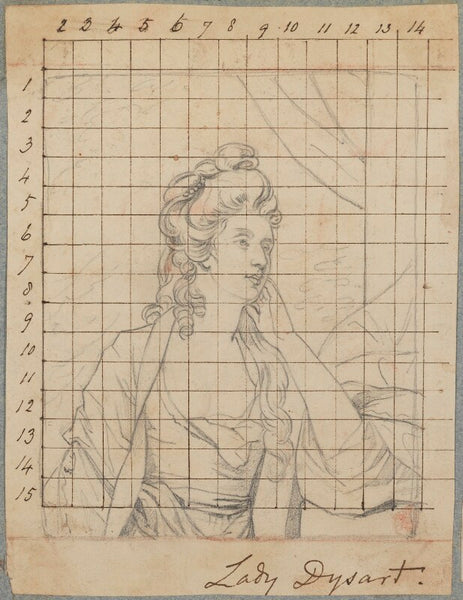 2 3 4 5 6 7 8 9 10 11 12 13 14
1
2
3
4
5
6
7
8
9
10
11
12
13
14
15
Lady Dysart.